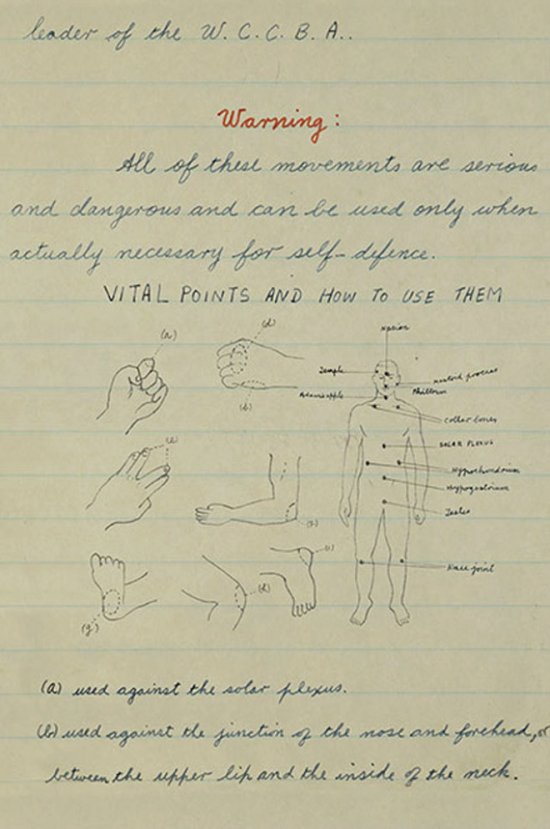 leader of the W. C. C. B. A..
Warning:
All of these movements are serious
and dangerous and can be used only when
actually necessary for self-defence.
VITAL POINTS AND HOW TO USE THEM
(a)
(d)
(b)
Nasion
Temple
Mastoid process
Adam's apple
Philtrum
Collar bones
SOLAR PLEXUS
Hypochondrium
Hypogastrium
Testes
Knee joint
(e)
(g)
(a) used against the solar plexus.
(b) used against the junction of the nose and forehead, or
between the upper lip and the inside of the neck.